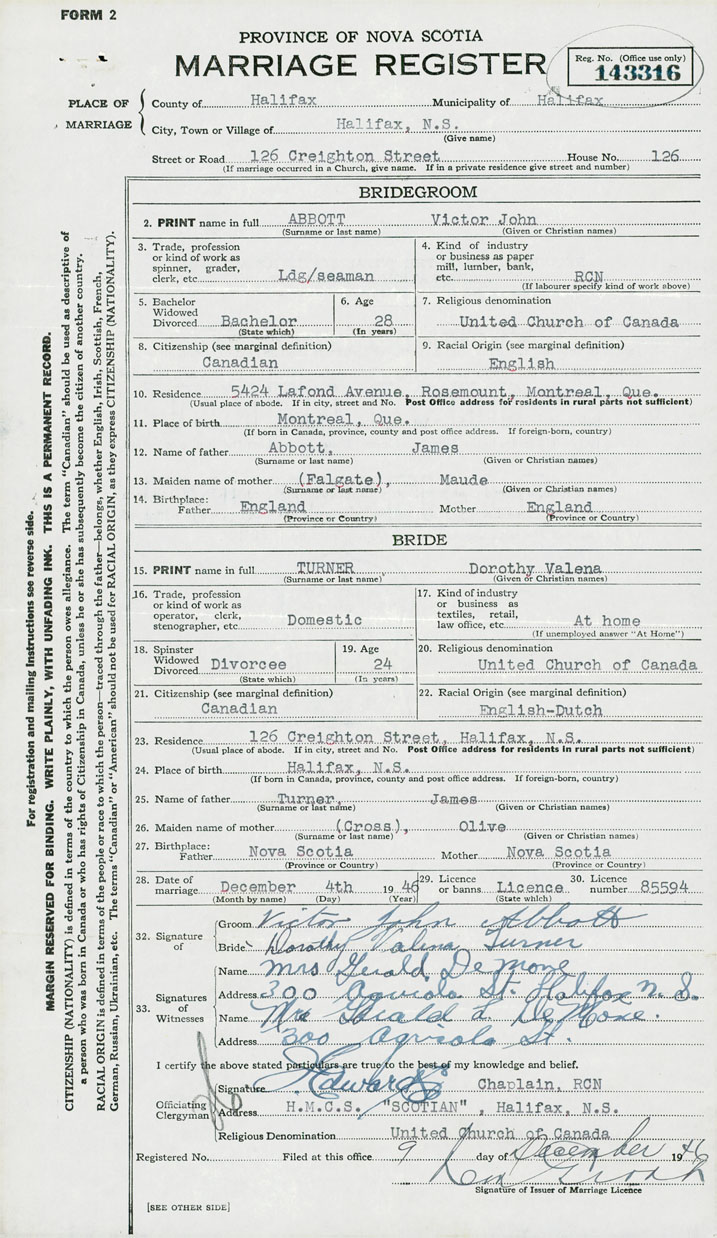 FORM 2
PROVINCE OF NOVA SCOTIA
MARRIAGE REGISTER
Reg. No. (Office use only)
143316
PLACE OF MARRIAGE
County of Halifax Municipality of Halifax
City, Town or Village of Halifax, N.S.
(Give name)
Street or Road 126 Creighton Street House No. 126
(If marriage occurred in a Church, give name. If in a private residence give street and number)
BRIDEGROOM
2. PRINT name in full ABBOTT Victor John
(Surname or last name) (Given or Christian names)
3. Trade, profession or kind of work as spinner, grader, clerk, etc. Ldg/seaman
4. Kind of industry or business as paper mill, lumber, bank, etc. RCN
(If labourer specify kind of work above)
5. Bachelor Widowed Divorced Bachelor
(State which)
6. Age 28
(In years)
7. Religious denomination
United Church of Canada
8. Citizenship (see marginal definition)
Canadian
9. Racial Origin (see marginal definition)
English
10. Residence 5424 Lafond Avenue, Rosemount, Montreal, Que.
(Usual place of abode. If in city, street and No. Post Office address for residents in rural parts not sufficient)
11. Place of birth Montreal, Que.
(If born in Canada, province, county and post office address. If foreign-born, country)
12. Name of father Abbott, James
(Surname or last name) (Given or Christian names)
13. Maiden name of mother (Falgate), Maude
(Surname or last name) (Given or Christian names)
14. Birthplace: Father England Mother England
(Province or Country) (Province or Country)
BRIDE
15. PRINT name in full TURNER Dorothy Valena
(Surname or last name) (Given or Christian names)
16. Trade, profession or kind of work as operator, clerk, stenographer, etc Domestic
17. Kind of industry or business as textiles, retail, law office, etc. At home
(If unemployed answer "At Home")
18. Spinster Widowed Divorced Divorcee
(State which)
19. Age 24
(In years)
20. Religious denomination
United Church of Canada
21. Citizenship (see marginal definition)
Canadian
22. Racial Origin (see marginal definition)
English-Dutch
23. Residence 126 Creighton Street, Halifax, N.S.
(Usual place of abode. If in city, street and No. Post Office address for residents in rural parts not sufficient)
24. Place of birth Halifax, N.S.
(If born in Canada, province, county and post office address. If foreign-born, country)
25. Name of father Turner, James
(Surname or last name) (Given or Christian names)
26. Maiden name of mother (Cross), Olive
(Surname or last name) (Given or Christian names)
27. Birthplace: Father Nova Scotia Mother Nova Scotia
(Province or Country) (Province or Country)
28. Date of marriage December 4th 1946
(Month by name) (Day) (Year)
29. Licence or banns Licence
(State which)
30. Licence number 85594
32. Signature of
Groom Victor John Abbott
Bride Dorothy Valena Turner
33. Signatures of Witnesses
Name Mrs Gerald DeMone
Address 300 Agricola St. Halifax N.S.
Name Mr Gerald L DeMone.
Address 300 Agricola St.
I certify the above stated particulars are true to the best of my knowledge and belief.
Officiating Clergyman
Signature Edwards Chaplain, RCN
Address H.M.C.S. "SCOTIAN", Halifax, N.S.
Religious Denomination United Church of Canada
Registered No. Filed at this office 9 day of December 1946
Signature of Issuer of Marriage Licence
[SEE OTHER SIDE]
For registration and mailing instructions see reverse side.
MARGIN RESERVED FOR BINDING. WRITE PLAINLY, WITH UNFADING INK. THIS IS A PERMANENT RECORD.
CITIZENSHIP (NATIONALITY) is defined in terms of the country to which the person owes allegiance. The term "Canadian" should be used as descriptive of
a person who was born in Canada or who has rights of Citizenship in Canada, unless he or she has subsequently become the citizen of another country.
RACIAL ORIGIN is defined in terms of the people or race to which the person—traced through the father—belongs, whether English, Irish, Scottish, French,
German, Russian, Ukrainian, etc. The terms "Canadian" or "American" should not be used for RACIAL ORIGIN, as they express CITIZENSHIP (NATIONALITY).